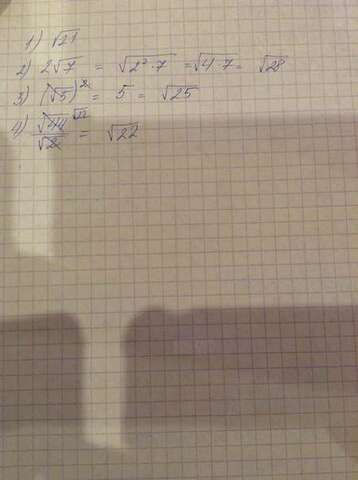 1) √21
2) 2√7 = √2²·7 = √4·7 = √28
3) (√5)² = 5 = √25
4) √44/√2 √22 = √22